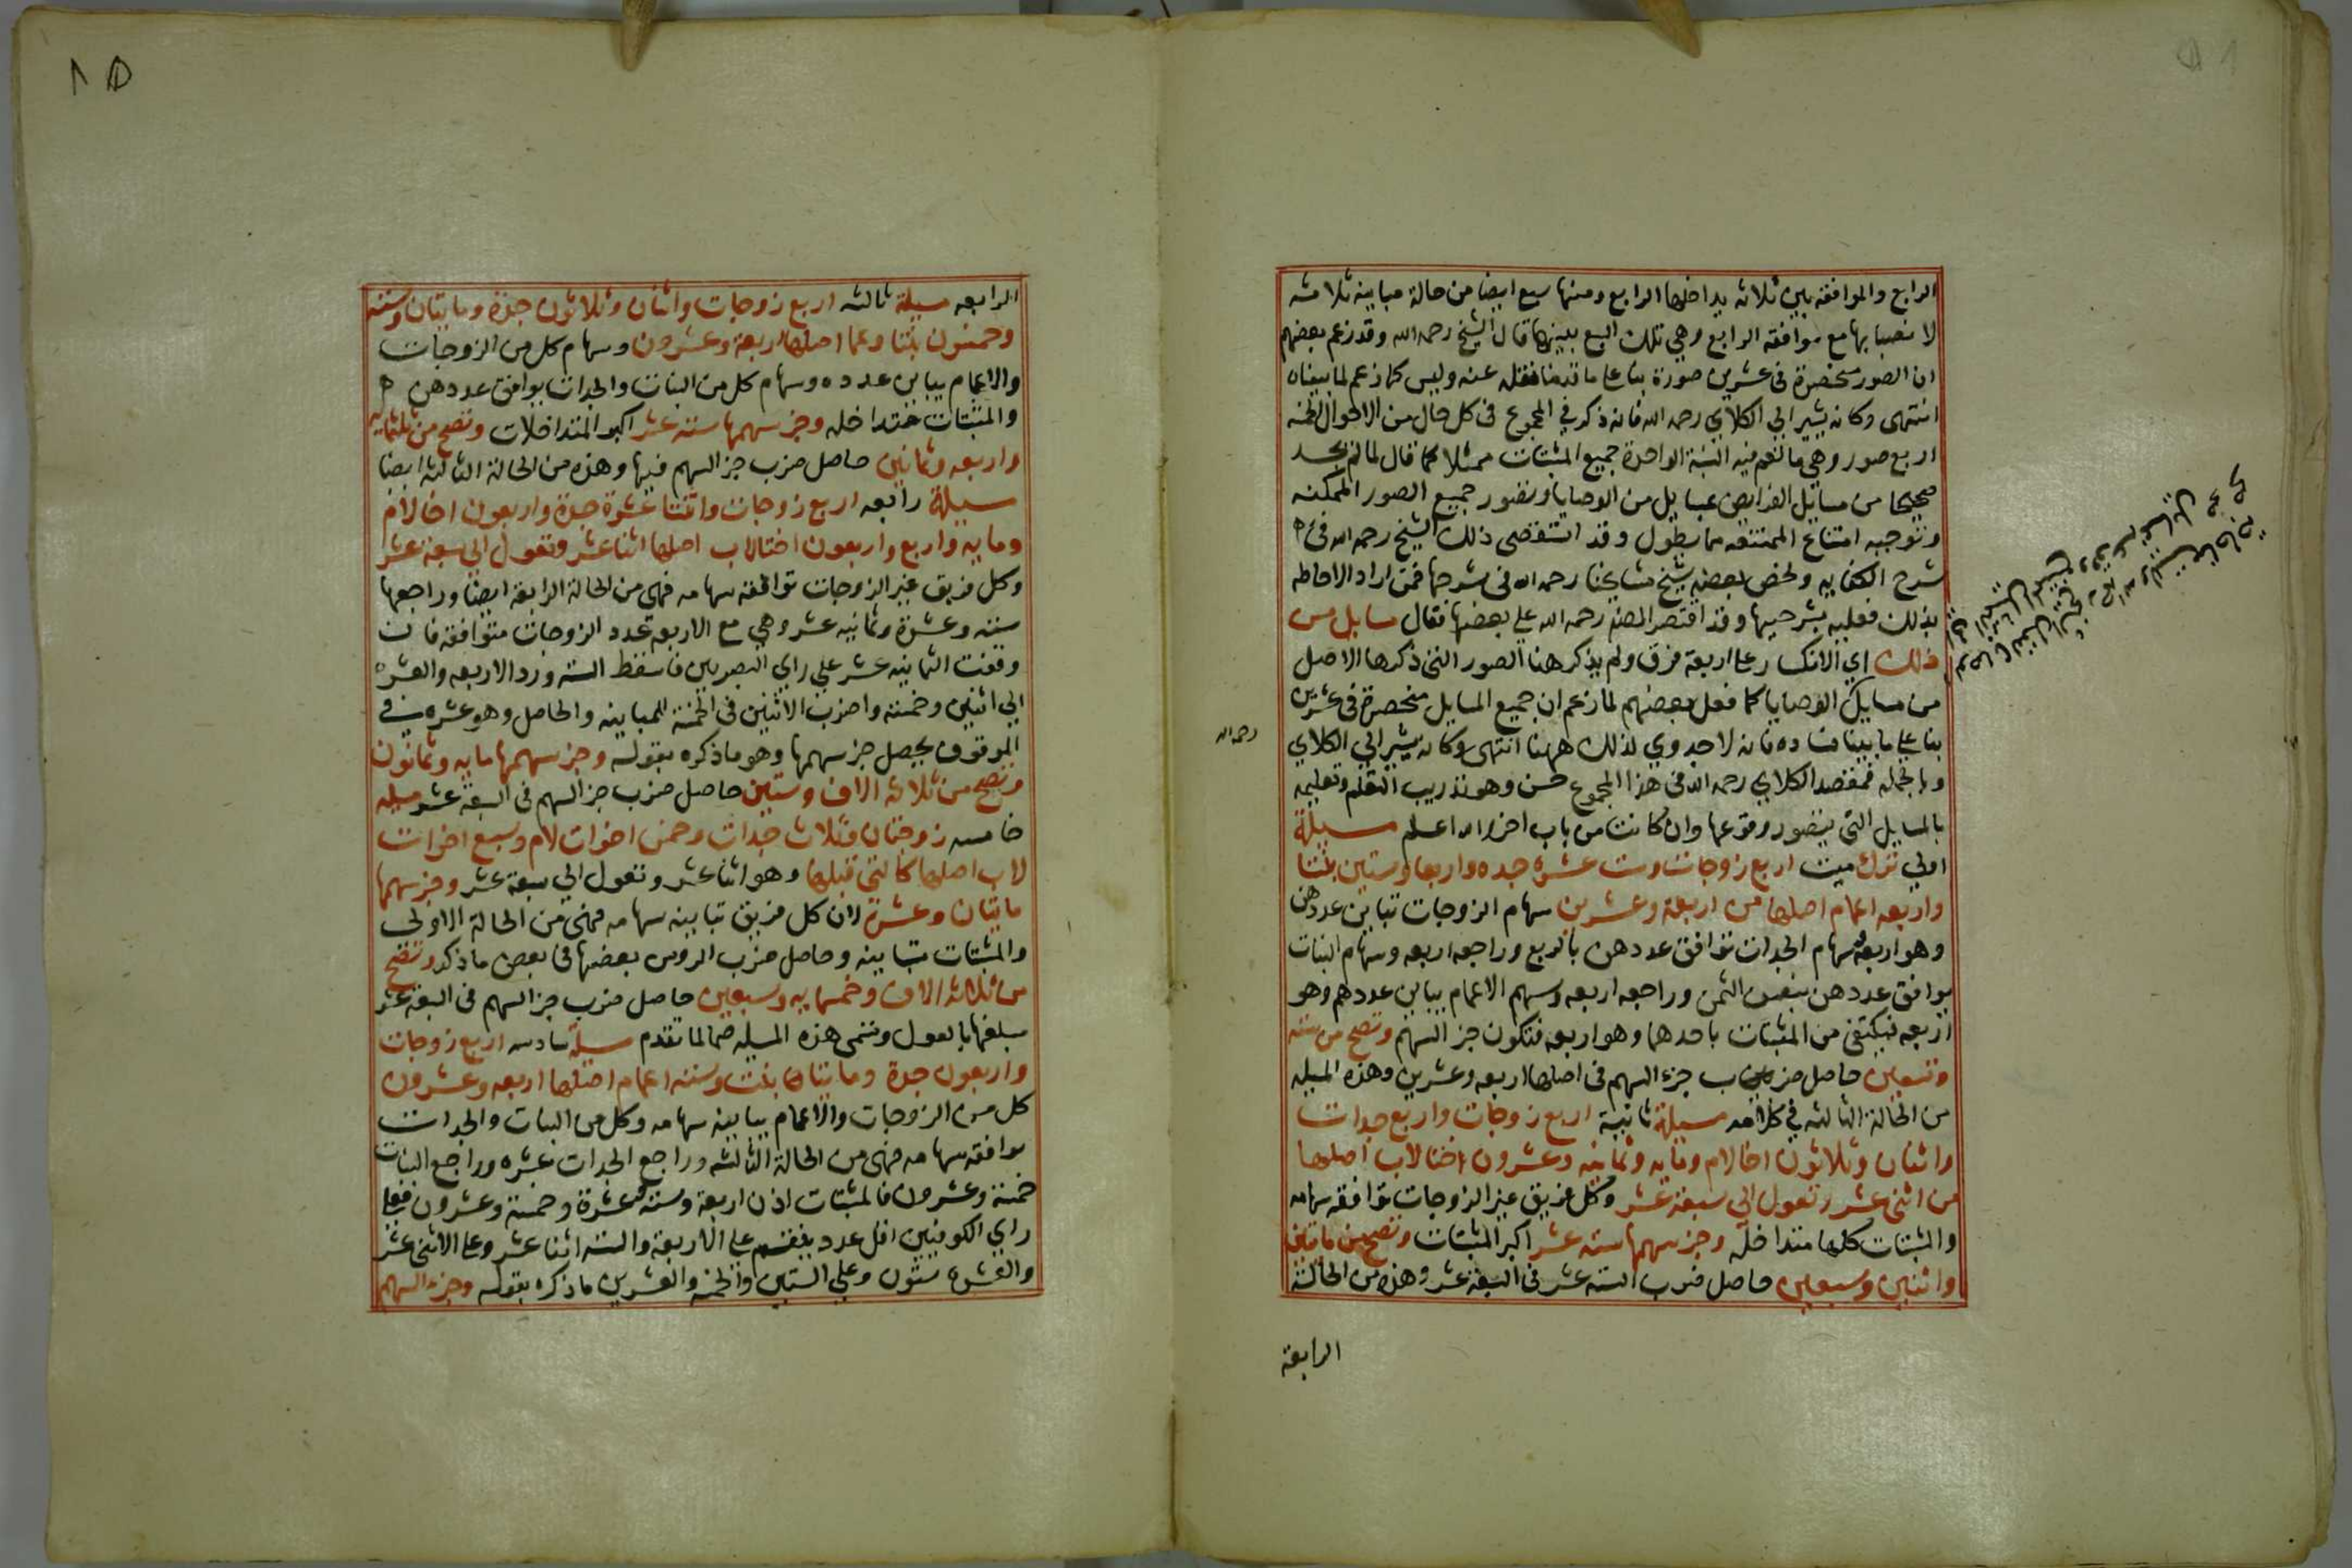 الرابع والموافقة بين ثلاثه يداخلها الرابع ومنها سبع ايضا من حالة مباينه ثلاثه
لا نصبابها مع موافقه الرابع وهي تلك السبع بعينها قال الشيخ رحمه الله وقد زعم بعضهم
ان الصور منحصرة في عشرين صورة بنا على ما قدمنا نقله عنه وليس كما زعم لما بيناه
انتهى وكانه يشير الي الكلاي رحمه الله فانه ذكر في المجموع في كل حال من الاحوال الخمسه
اربع صور وهي ما تعم فيه النسبة الواحدة جميع المثبتات ممثلا كما قال لما لم يجد
صحيحا من مسايل الفرايض بمسايل من الوصايا وتصور جميع الصور الممكنه
وتوجيه امتناع الممتنعه مما يطول وقد استقصى ذلك الشيخ رحمه الله في
شرح الكفايه ولخص بعضه شيخ مشايخنا رحمه الله في شرحها فمن اراد الاحاطه
بذلك فعليه بشرحيها وقد اقتصر المصنف رحمه الله على بعضها فقال مسايل من
ذلك اي الانكسار على اربعة فرق ولم يذكر هنا الصور التي ذكرها الاصل
من مسايل الوصايا كما فعل بعضهم لما زعم ان جميع المسايل منحصرة في عشرين
بنا على ما بينا فساده فانه لا جدوي لذلك ههنا انتهى وكانه يشير الي الكلاي
رحمه الله
وبالجمله فمقصد الكلاي رحمه الله في هذا المجموع حسن وهو تدريب المتعلم وتعليمه
بالمسايل التي يتصور وقوعها وان كانت من باب اخر والله اعلم مسيلة
اولي ترك ميت اربع زوجات وست عشره جده واربعا وستين بنتا
واربعه اعمام اصلها من اربعة وعشرين سهام الزوجات تباين عددهن
وهو اربعه وسهام الجدات توافق عددهن بالربع وراجعه اربعه وسهام البنات
يوافق عددهن بنصف الثمن وراجعه اربعه وسهم الاعمام يباين عددهم وهو
اربعه فيكتفى من المثبتات باحدهما وهو اربعه فتكون جز السهم وتصح من سته
وتسعين حاصل ضرب جزء السهم في اصلها اربعه وعشرين وهذه المسيله
من الحالة الثالثه في كلامه مسيلة ثانية اربع زوجات واربع جدات
واثنان وثلاثون اخا لام ومايه وثمانيه وعشرون اختا لاب اصلها
من اثنى عشر وتعول الي سبعة عشر وكل فريق غير الزوجات توافقه سهامه
والمثبتات كلها متداخله وجز سهمها سته عشر اكبر المثبتات وتصح من مايتين
واثنين وسبعين حاصل ضرب السته عشر في السبعة عشر وهذه من الحالة
الرابعة
الرابعه مسيلة ثالثه اربع زوجات واثنان وثلاثون جدة ومايتان وسته
وخمسون بنتا وعما اصلها اربعة وعشرون وسهام كل من الزوجات
والاعمام يباين عدده وسهام كل من البنات والجدات يوافق عددهن
والمثبتات متداخله وجز سهمها سته عشر اكبر المتداخلات وتصح من ثلثمايه
واربعه وثمانين حاصل ضرب جز السهم فيها وهذه من الحالة الثالثه ايضا
مسيلة رابعه اربع زوجات واثنتا عشرة جدة واربعون اخا لام
ومايه واربع واربعون اختا لاب اصلها اثنا عشر وتعول الي سبعة عشر
وكل فريق غير الزوجات توافقه سهامه فهي من الحالة الرابعة ايضا وراجعها
سته وعشرة وثمانيه عشر وهي مع الاربعة عدد الزوجات متوافقه فان
وقفت الثمانيه عشر علي راي البصريين فاسقط السته ورد الاربعه والعشره
الي اثنين وخمسه واضرب الاثنين في الخمسة للمباينه والحاصل وهو عشره في
الموقوف يحصل جز سهمها وهو ما ذكره بقوله وجز سهمها مايه وثمانون
وتصح من ثلاثه الاف وستين حاصل ضرب جز السهم في السبعة عشر مسيله
خامسه زوجتان وثلاث جدات وخمس اخوات لام وسبع اخوات
لاب اصلها كالتي قبلها وهو اثنا عشر وتعول الي سبعة عشر وجز سهمها
مايتان وعشرة لان كل فريق تباينه سهامه فهي من الحالة الاولى
والمثبتات متباينه وحاصل ضرب الروس بعضها في بعض ما ذكر وتصح
من ثلاثة الاف وخمسمايه وسبعين حاصل ضرب جز السهم في السبعة عشر
مبلغها بالعول وتسمى هذه المسيله صما لما تقدم مسيلة سادسه اربع زوجات
واربعون جدة ومايتان بنت وسته اعمام اصلها اربعه وعشرون
كل من الزوجات والاعمام يباينه سهامه وكل من البنات والجدات
يوافقه سهامه فهي من الحالة الثالثه وراجع الجدات عشره وراجع البنات
خمسة وعشرون فالمثبتات اذن اربعة وسته وعشرة وخمسة وعشرون فعلى
راي الكوفيين اقل عدد ينقسم على الاربعة والسته اثنا عشر وعلى الاثنى عشر
والعشره ستون وعلي الستين والخمسه والعشرين ما ذكره بقوله وجزء السهم